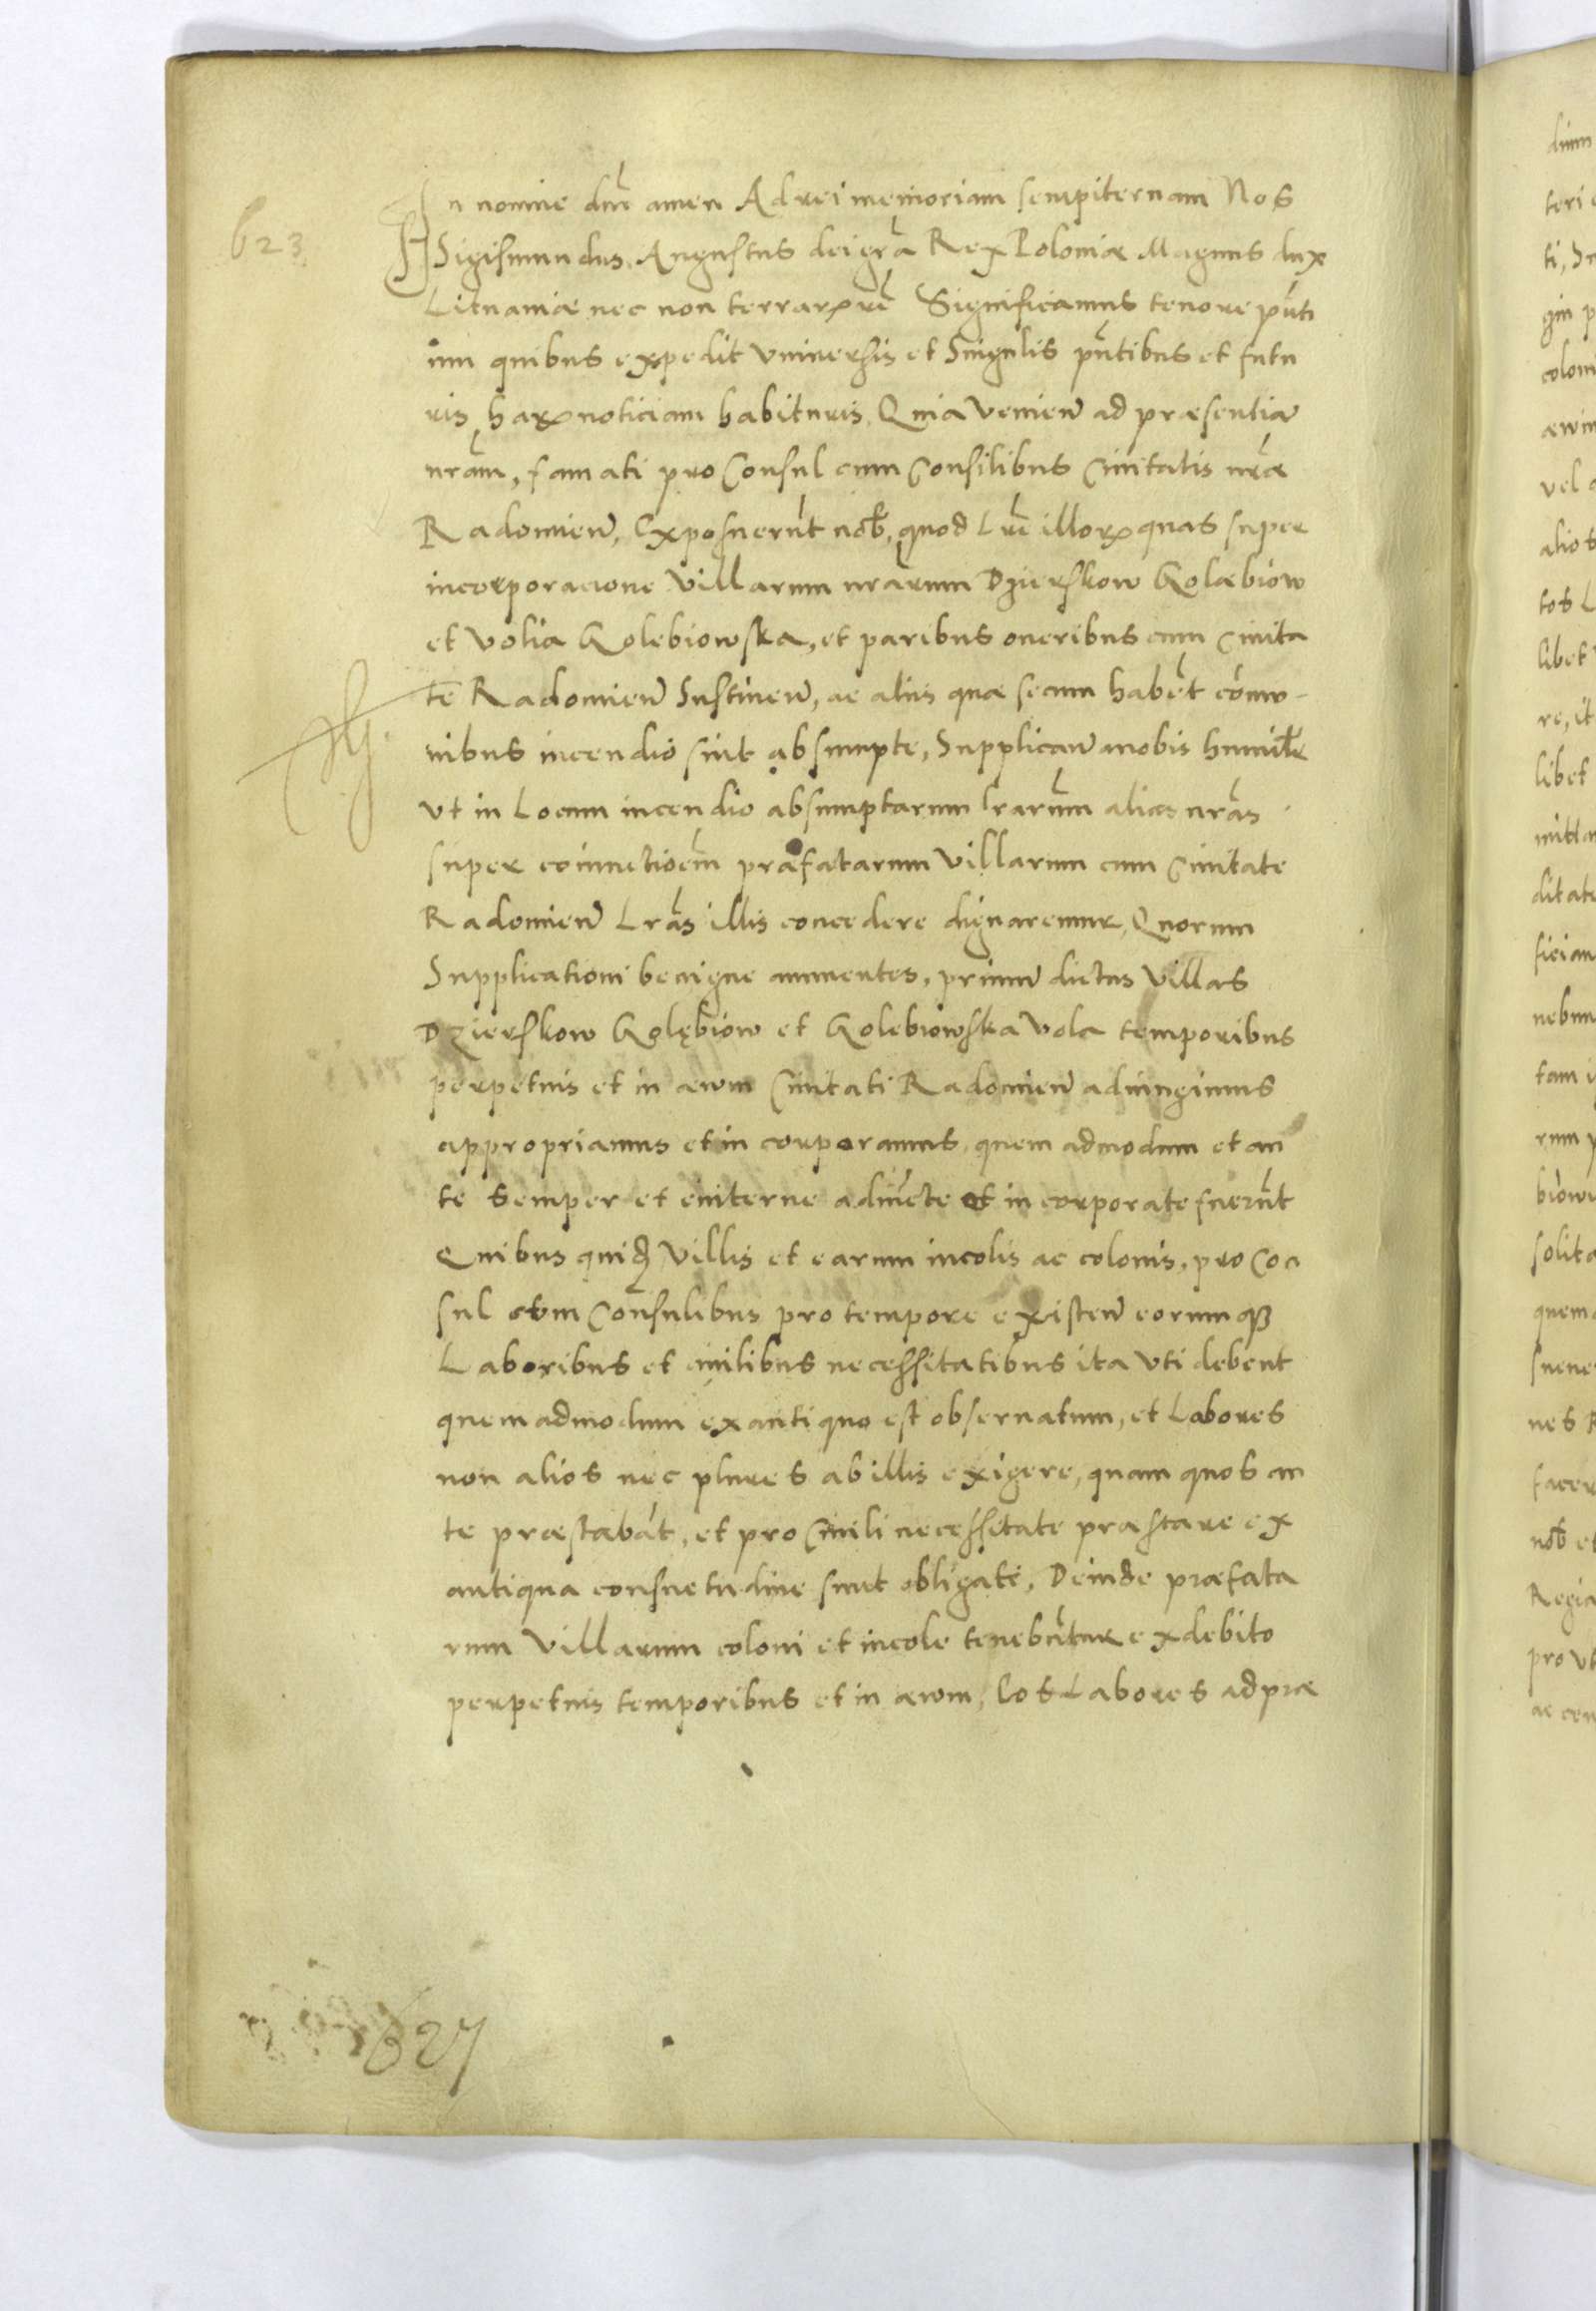 623
In nomine dnī amen Ad rei memoriam sempiternam Nos
Sigismundus Augustus dei grā Rex Poloniæ Magnus dux
Lituaniæ nec non terrarꝝ rē Significamus tenore pn̄ti
um quibus expedit vniuersis et Singulis pn̄tibus et futu
ris haꝝ noticiam habituris, Quia venien̄ ad præsentia
nrām, famati pro Consul cum Consilibus Ciuitatis nrāe
Radomien̄, Exposuerūt nob̄, quod Lrē illorꝝ quas super
incorporacione Villarum nrārum Dzierskow Golæbiow
et Volia Golebiowska, et paribus oneribus cum Ciuita
te Radomien̄ Sustinen̄, ac aliis quæ secum habēt comō-
nibus incendio sint absumpte, Supplican̄ nobis humilr̄
vt in Locum incendio absumptarum lrārum alias nrās
super coniunctioēm præfatarum Villarum cum Ciuitate
Radomien̄ Lrās illis concedere dignaremur, Quorum
Supplicationi benigne annuentes, primum dictas Villas
Dzierskow Golębiow et Golebiowska Vola temporibus
perpetuis et in æwm Ciuitati Radomien̄ adiungimus
appropriamus et in corporamus, quem admodum et an
te semper et euiterne adiūcte et in corporate fuerūt
Quibus quid Villis et earum incolis ac colonis, pro Con
sul cum Consulibus pro tempore existen̄ eorumqꝫ
Laboribus et ciuilibus necessitatibus ita vti debent
quemadmodum ex antiquo est obseruatum, et Labores
non alios nec plures ab illis exigere, quam quos an
te præstabāt, et pro Ciuili necessitate præstare ex
antiqua consuetudine sunt obligati, Deinde præfata
rum Villarum coloni et incole tenebūtur ex debito
perpetuis temporibus et in æwm, eos Labores ad præ
627